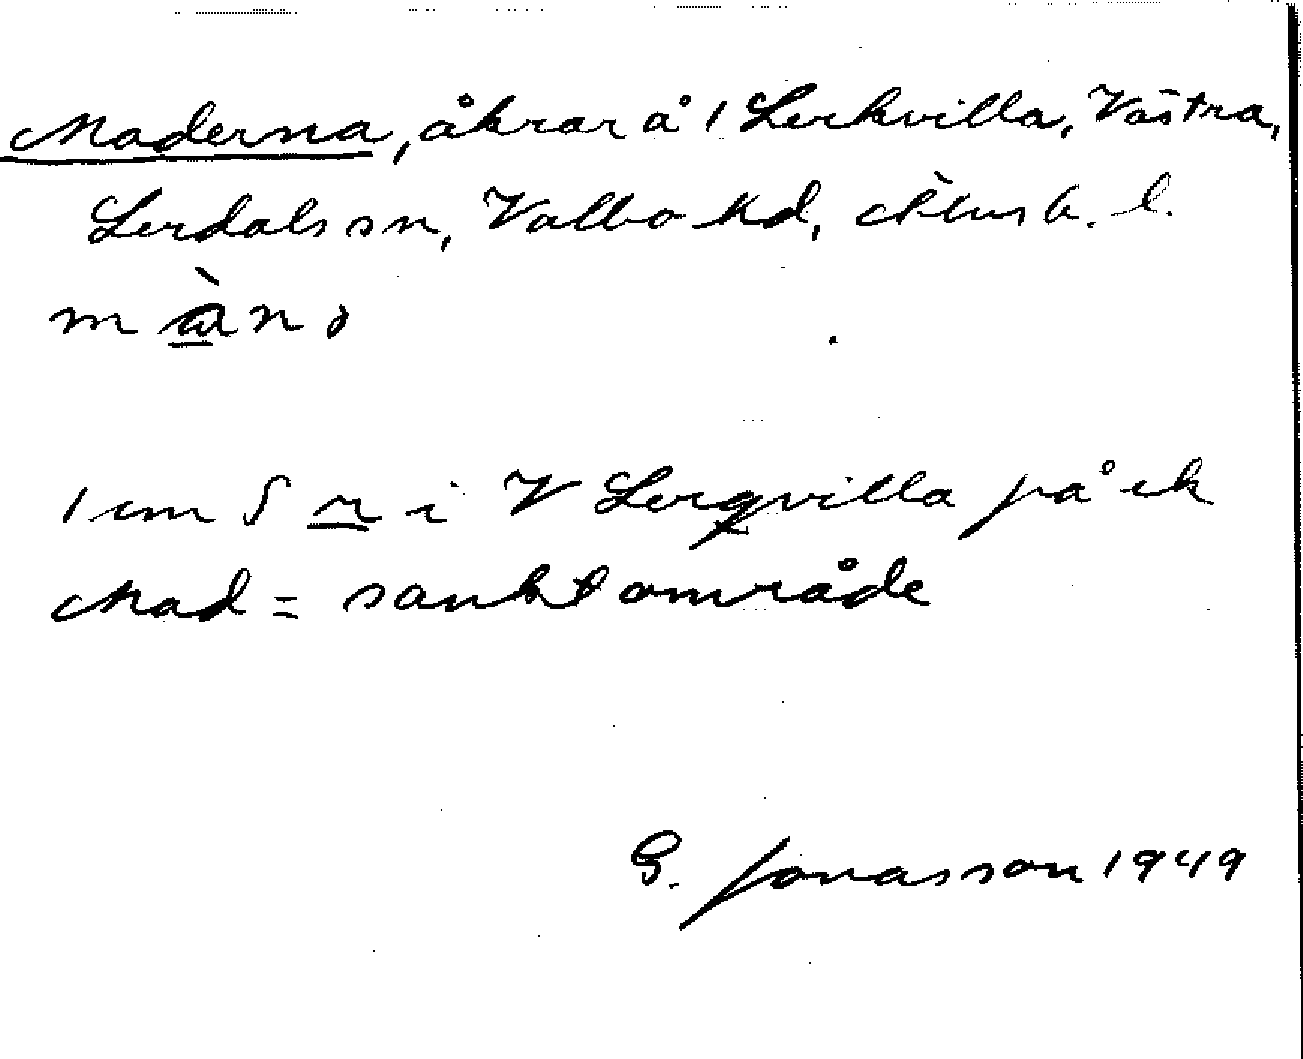 Maderna, åkrar å 1 Lerkvilla, Västra,
Lerdals sn, Valbo hd, Älvsb. l.
màn
1 cm S r i V Lerqvilla på ek
Mad = sankt område
G. Jonasson 1949